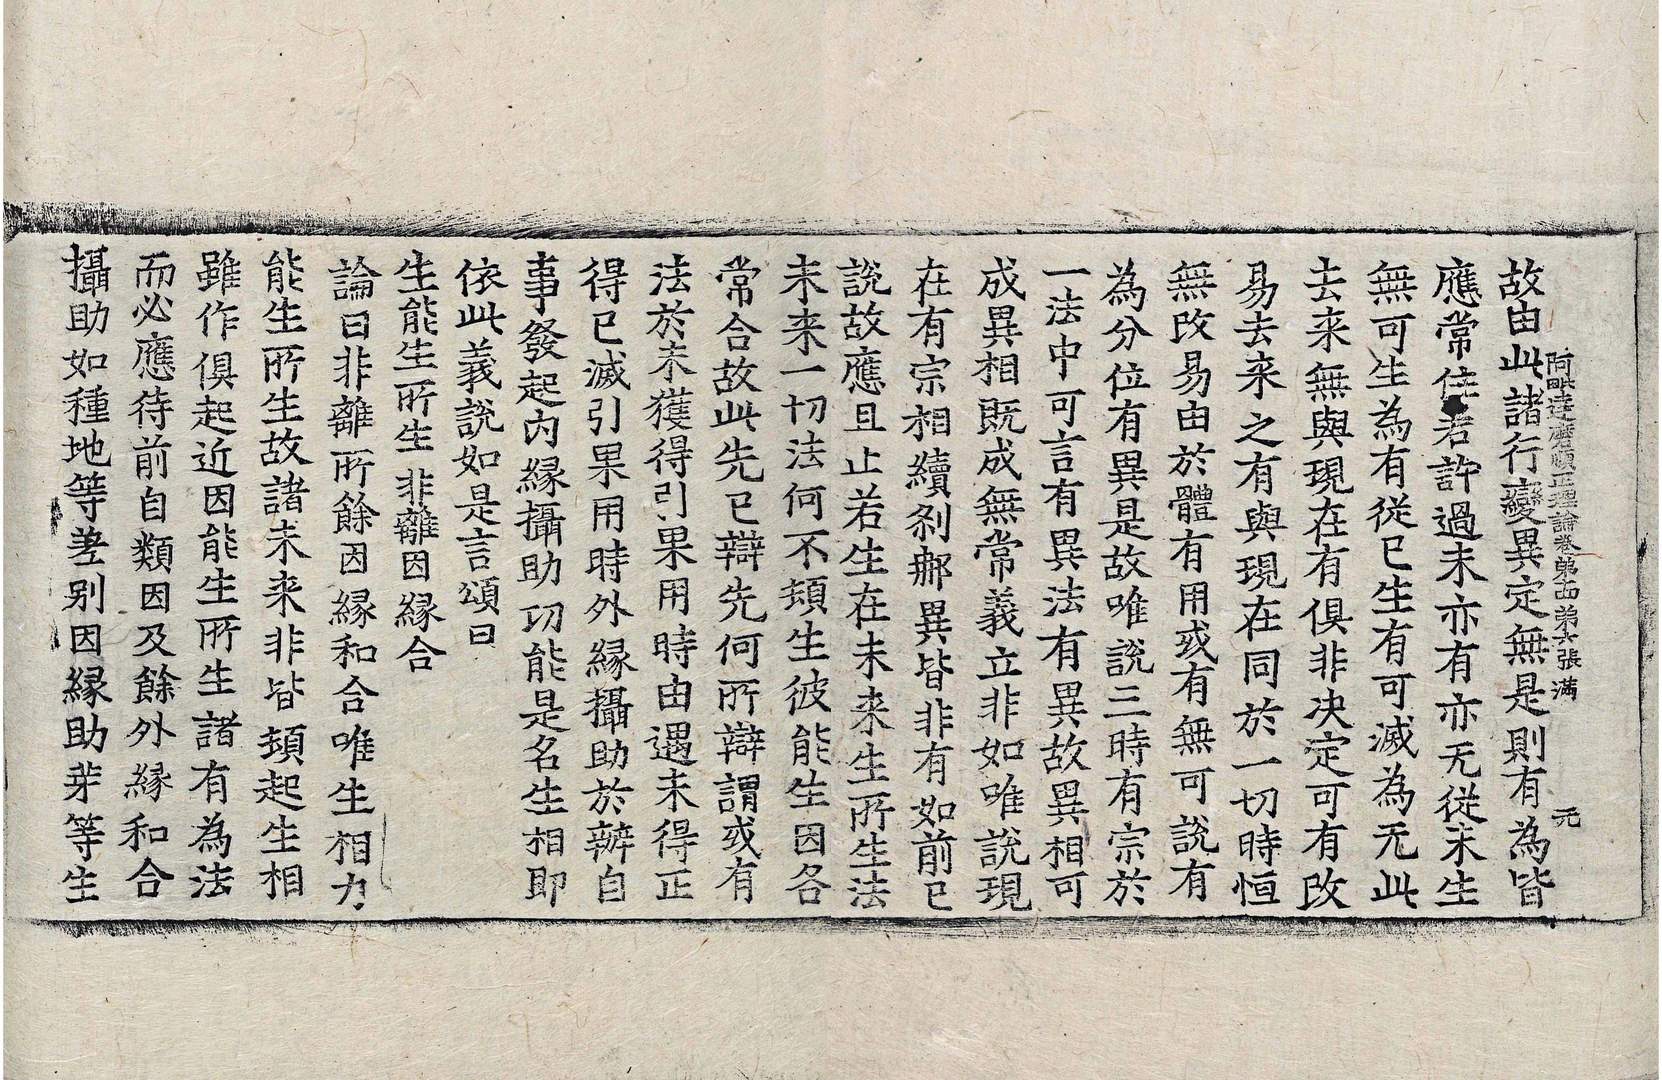 阿毗達磨順正理論卷第十四 第六張 滿
元
故由此諸行變異定無是則有為皆
應常住若許過未亦有亦无從未生
無可生為有從已生有可滅為无此
去来無與現在有俱非决定可有改
易去来之有與現在同於一切時恒
無改易由於體有用或有無可說有
為分位有異是故唯說三時有宗於
一法中可言有異法有異故異相可
成異相既成無常義立非如唯說現
在有宗相續刹那異皆非有如前已
說故應且止若生在未来生所生法
未来一切法何不頓生彼能生因各
常合故此先已辯先何所辯謂或有
法於未獲得引果用時由遇未得正
得已滅引果用時外縁攝助於辦自
事發起内縁攝助功能是名生相即
依此義說如是言頌曰
生能生所生 非離因縁合
論曰非離所餘因縁和合唯生相力
能生所生故諸未来非皆頓起生相
雖作俱起近因能生所生諸有為法
而必應待前自類因及餘外縁和合
攝助如種地等差别因縁助芽等生